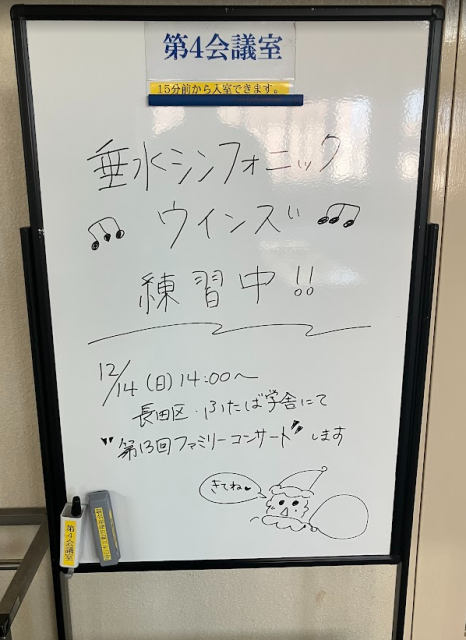 第4会議室
15分前から入室できます。
垂水シンフォニック
ウインズ
練習中!!
12/14(日)14:00〜
長田区・ふたば学舎にて
"第13回ファミリーコンサート"します
きてね♥
第4会議室